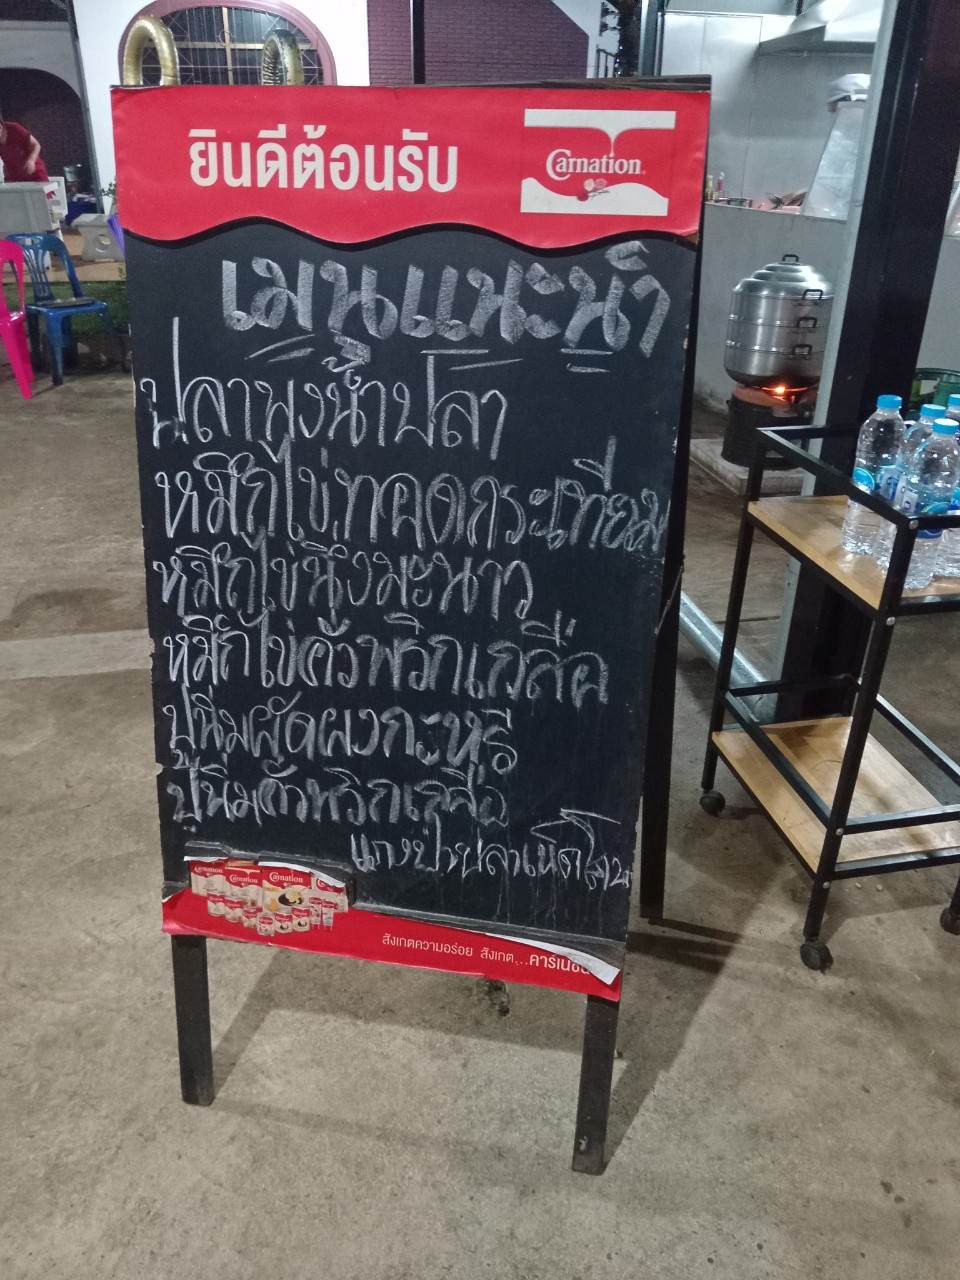 ยินดีต้อนรับ
Carnation
เมนูแนะนำ
ปลาพงน้ำปลา
หมึกไข่ทอดกระเทียม
หมึกไข่นึ่งมะนาว
หมึกไข่คั่วพริกเกลือ
ปูนิ่มผัดผงกะหรี่
ปูนิ่มคั่วพริกเกลือ
แกงป่าปลาเห็ดโคน
Carnation
Carnation
Carnation
สังเกตความอร่อย สังเกต...คาร์เนชัน